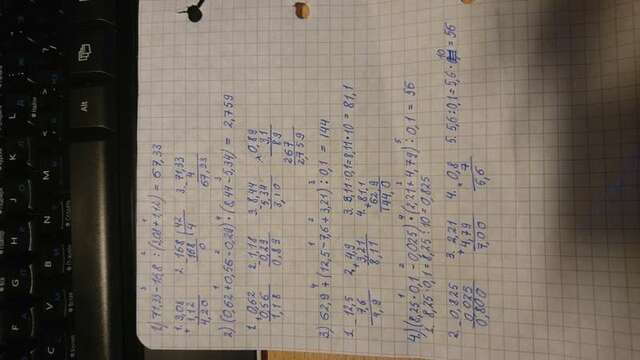 Alt
1) 71,33 - 16,8 : (2,08 + 1,12) = 67,33
1. 3,08 + 1,12 = 4,20
2. 168 | 42
168 | 4
0
3. 71,33 - 4 = 67,33
2) (0,62 + 0,56 - 0,29) · (8,44 - 5,34) = 2,759
1. 0,62 + 0,56 = 1,18
2. 1,18 - 0,29 = 0,89
3. 8,44 - 5,34 = 3,10
× 0,89
3,1
89
267
2759
3) 62,9 + (12,5 - 7,6 + 3,21) : 0,1 = 144
1. 12,5 - 7,6 = 4,9
2. + 4,9
3,21
8,11
3. 8,11 : 0,1 = 8,11 · 10 = 81,1
4. + 81,1
62,9
144,0
4) (8,25 · 0,1 - 0,025) · (2,21 + 4,79) : 0,1 = 56
1. 8,25 · 0,1 = 8,25 : 10 = 0,825
2. - 0,825
0,025
0,800
3. + 2,21
4,79
7,00
4. 0,8
7
5,6
5. 5,6 : 0,1 = 5,6 · 10 = 56